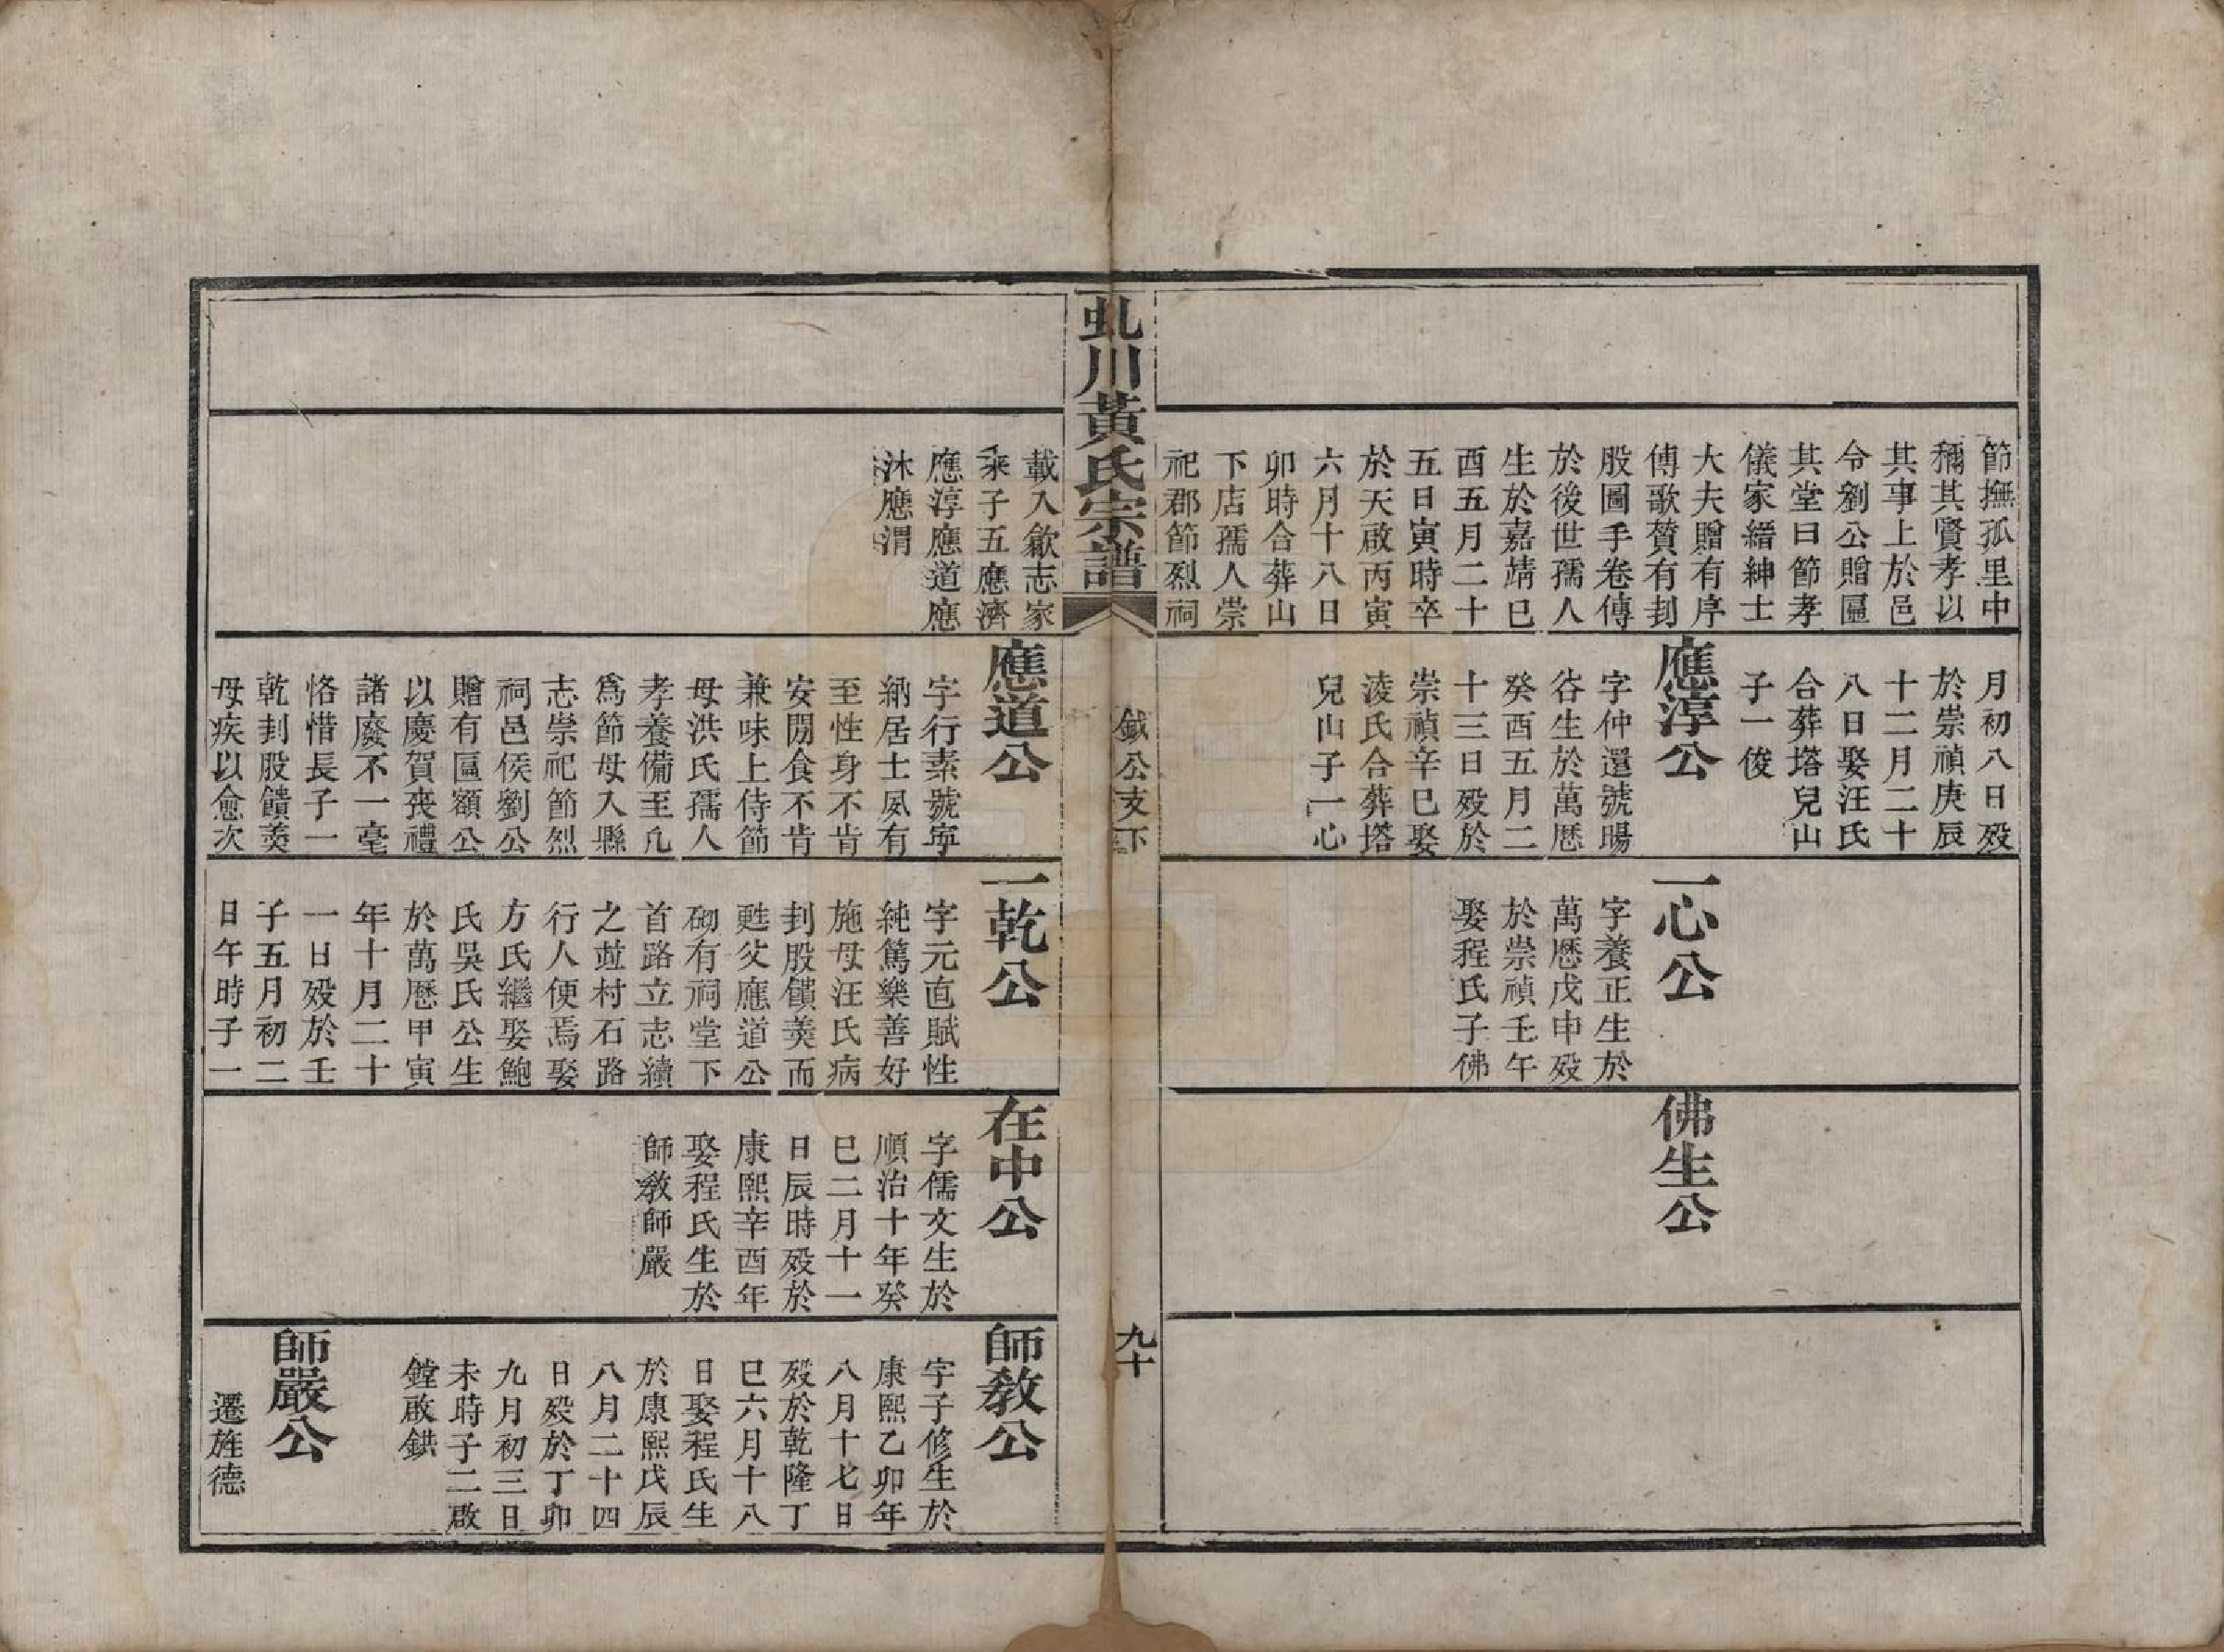 節撫孤里中
稱其賢孝以
其事上於邑
令劉公贈匾
其堂曰節孝
儀家縉紳士
大夫贈有序
傳歌贊有刲
股圖手卷傳
於後世孺人
生於嘉靖巳
酉五月二十
五日寅時卒
於天啟丙寅
六月十八日
卯時合葬山
下店孺人崇
祀郡節烈祠
月初八日殁
於崇禎庚辰
十二月二十
八日娶汪氏
合葬塔兒山
子一俊
應淳公
字仲還號暘
谷生於萬曆
癸酉五月二
十三日殁於
崇禎辛巳娶
淩氏合葬塔
兒山子一心
一心公
字養正生於
萬曆戊申殁
於崇禎壬午
娶程氏子佛
佛生公
虬川黃氏宗譜
鉞公支下
九十
載入歙志家
乘子五應濟
應淳應道應
沐應渭
應道公
字行素號寧
納居士夙有
至性身不肯
安閒食不肯
兼味上侍節
母洪氏孺人
孝養備至凢
爲節母入縣
志崇祀節烈
祠邑侯劉公
贈有匾額公
以慶賀喪禮
諸廢不一毫
恡惜長子一
乾刲股饋羮
母疾以愈次
一乾公
字元直賦性
純篤樂善好
施母汪氏病
刲股饋羮而
甦父應道公
砌有祠堂下
首路立志續
之竝村石路
行人便焉娶
方氏繼娶鮑
氏吳氏公生
於萬曆甲寅
年十月二十
一日殁於壬
子五月初二
日午時子一
在中公
字儒文生於
順治十年癸
巳二月十一
日辰時殁於
康熙辛酉年
娶程氏生於
師教師嚴
師教公
字子修生於
康熙乙卯年
八月十七日
殁於乾隆丁
巳六月十八
日娶程氏生
於康熙戊辰
八月二十四
日殁於丁卯
九月初三日
未時子二啟
鏜啟鉷
師嚴公
遷旌德